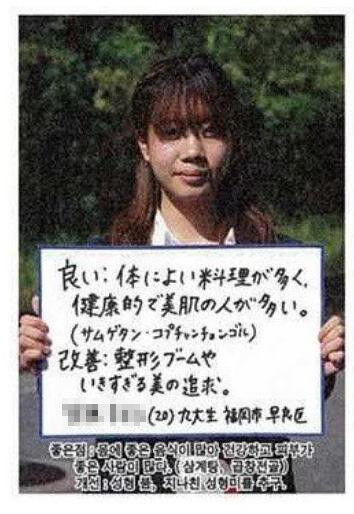 良い：体によい料理が多く、
健康的で美肌の人が多い。
(サムゲタン・コプチャンチョンゴル)
改善：整形ブームや
いきすぎる美の追求。
(20) 九大生 福岡市 早良区
좋은점 : 몸에 좋은 음식이 많아 건강하고 피부가
좋은 사람이 많다. (삼계탕, 곱창전골)
개선 : 성형 붐, 지나친 성형미를 추구.